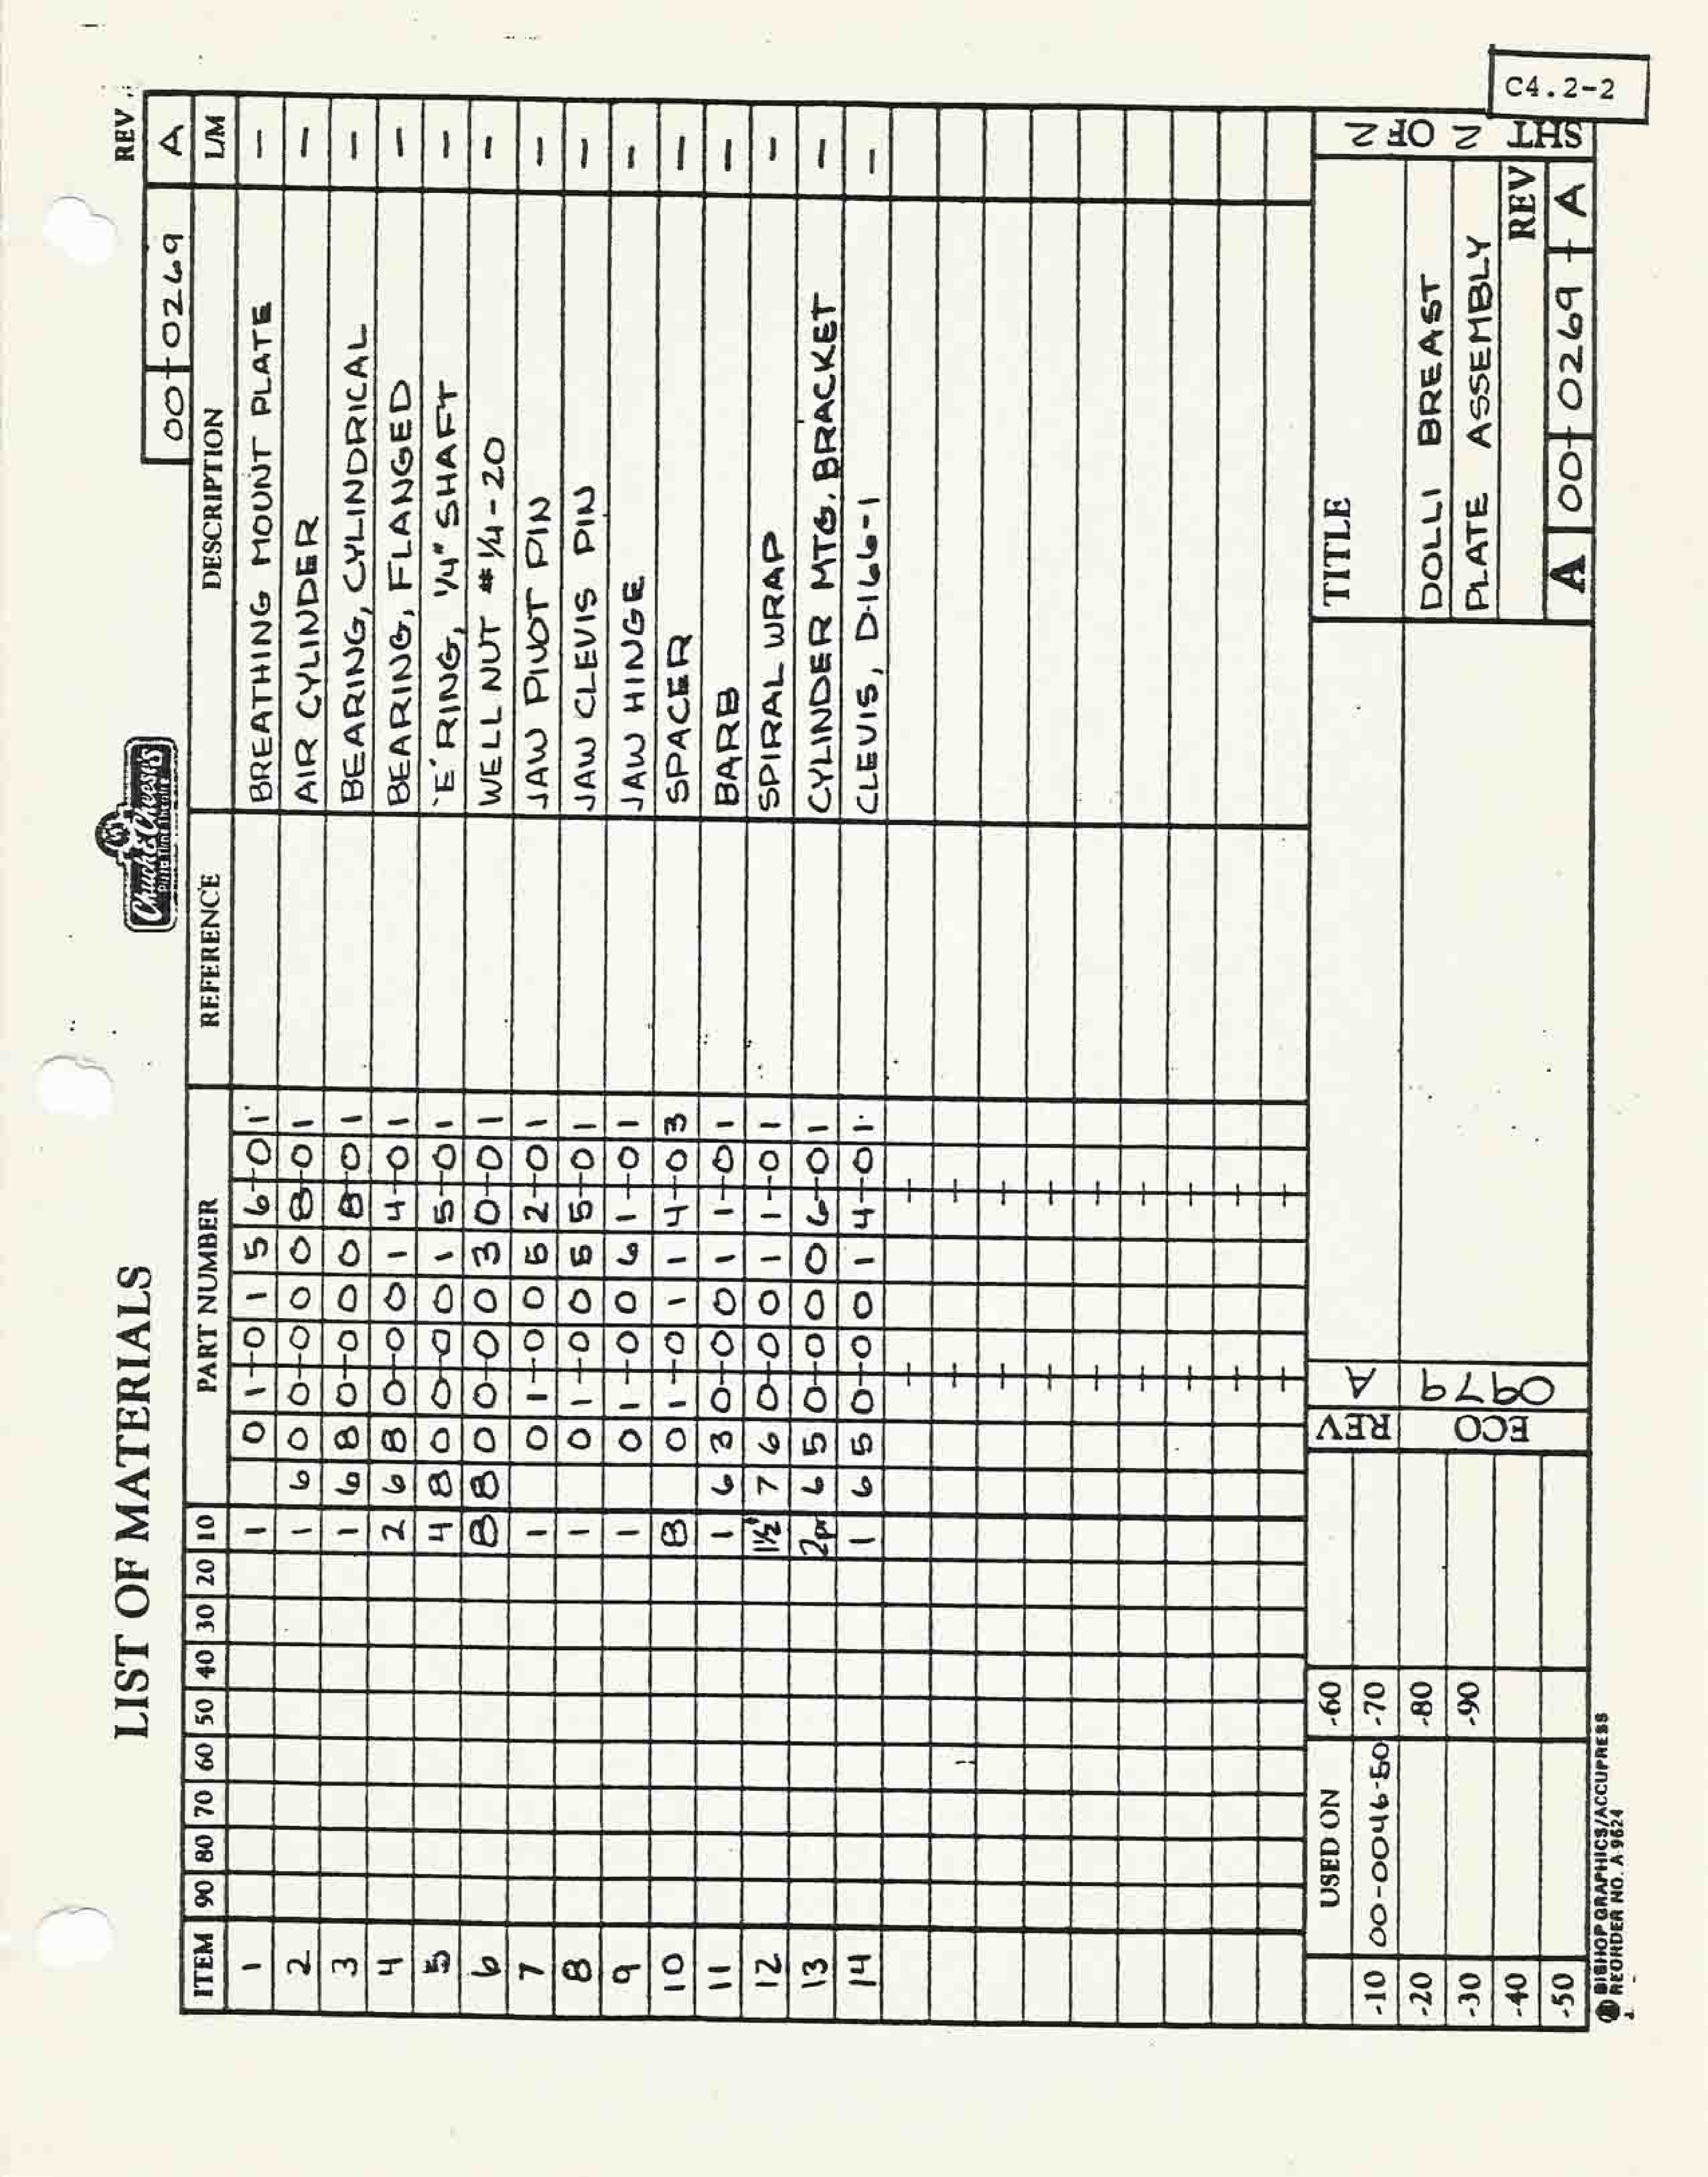 LIST OF MATERIALS
Chuck E. Cheese's
Pizza Time Theatre
REV
00-0269 A
ITEM 90 80 70 60 50 40 30 20 10 PART NUMBER REFERENCE DESCRIPTION L/M
1 1 01-0156-01 BREATHING MOUNT PLATE -
2 1 600-0008-01 AIR CYLINDER -
3 1 680-0008-01 BEARING, CYLINDRICAL -
4 2 680-0014-01 BEARING, FLANGED -
5 4 800-0015-01 'E' RING, 1/4" SHAFT -
6 8 800-0030-01 WELL NUT #1/4-20 -
7 1 01-0052-01 JAW PIVOT PIN -
8 1 01-0055-01 JAW CLEVIS PIN -
9 1 01-0061-01 JAW HINGE -
10 8 01-0114-03 SPACER -
11 1 630-0011-01 BARB -
12 1½' 760-0011-01 SPIRAL WRAP -
13 2pr 650-0006-01 CYLINDER MTG. BRACKET -
14 1 650-0014-01 CLEVIS, D-166-1 -
USED ON -60
-10 00-0046-50 -70
-20 -80
-30 -90
-40
-50
REV A
ECO 0979
TITLE
DOLLI BREAST
PLATE ASSEMBLY
REV
A 00-0269-A
SHT 2 OF 2
C4.2-2
BISHOP GRAPHICS/ACCUPRESS
REORDER NO. A-9624